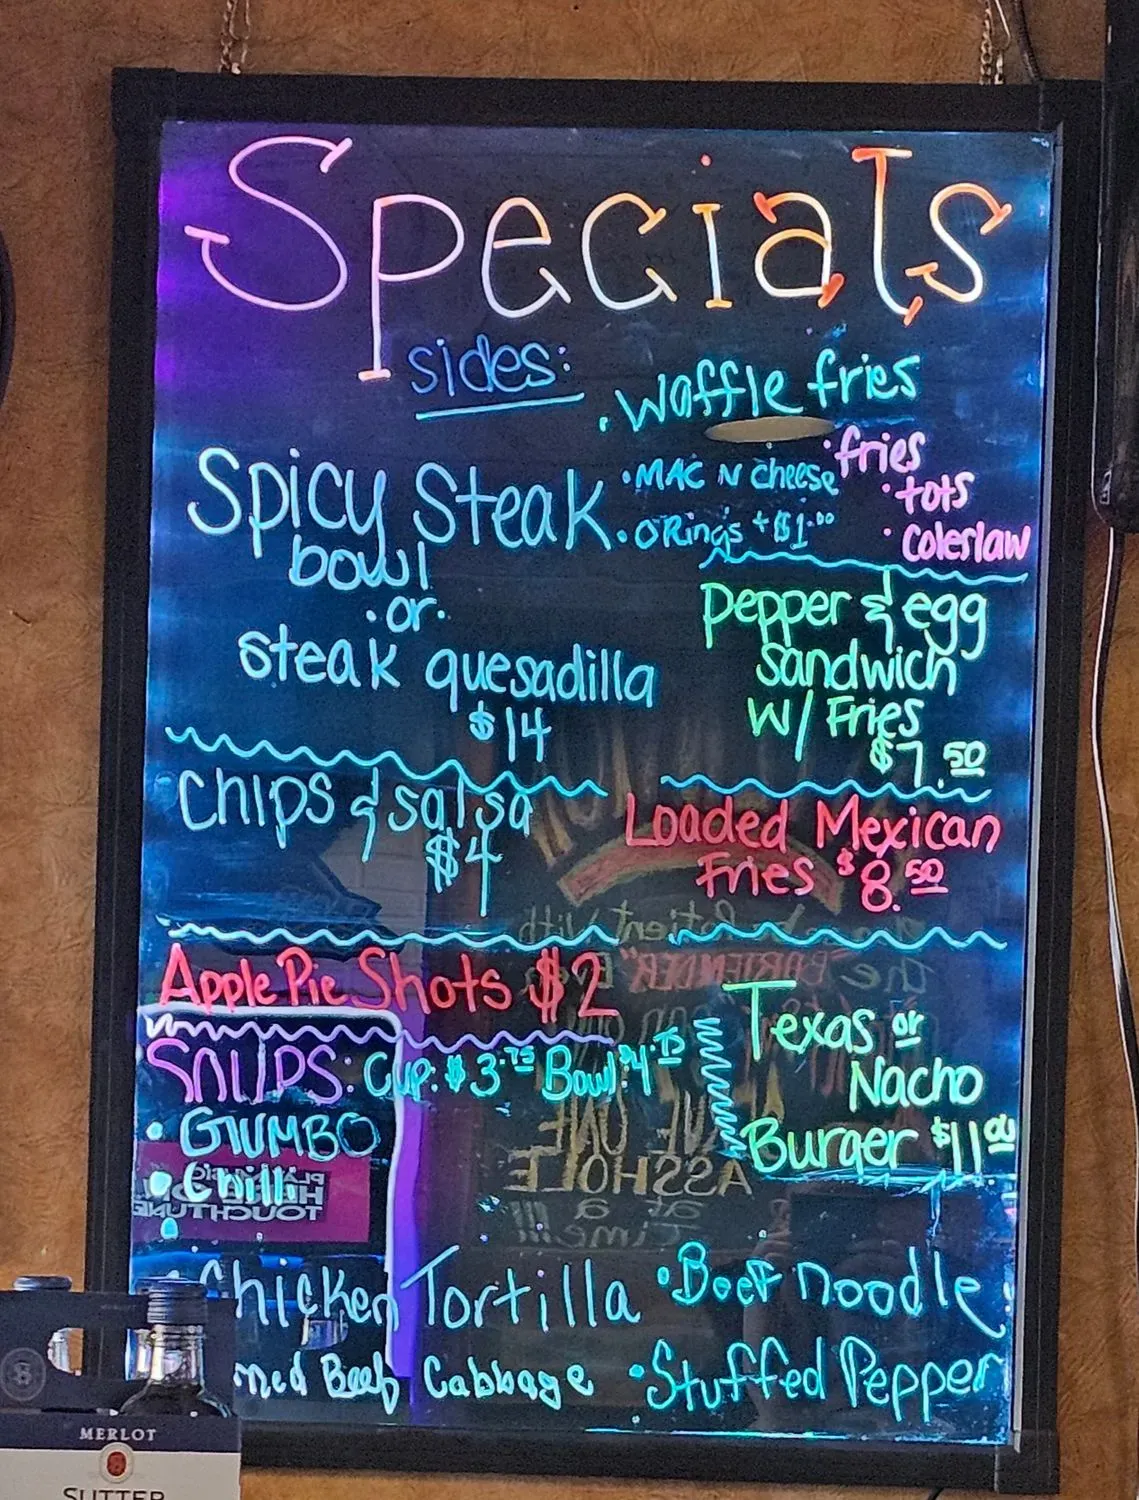 Specials
sides:
• Waffle fries
• MAC N Cheese
• O Rings + $1.00
• fries
• tots
• Coleslaw
Spicy Steak
bowl
• or •
steak quesadilla
$14
Pepper & egg
Sandwich
W/ Fries
$7.50
Chips & salsa
$4
Loaded Mexican
Fries $8.50
Apple Pie Shots $2
Texas or
Nacho
Burger $11.00
Soups: Cup: $3.75 Bowl: $4.75
• GUMBO
• Chili
• Chicken Tortilla
• Beef noodle
Beef Cabbage
• Stuffed Pepper
the "BARTENDER"
ONE
ASSHOLE
at a
time!!!
TOUCHTUNES
MERLOT
SUTTER